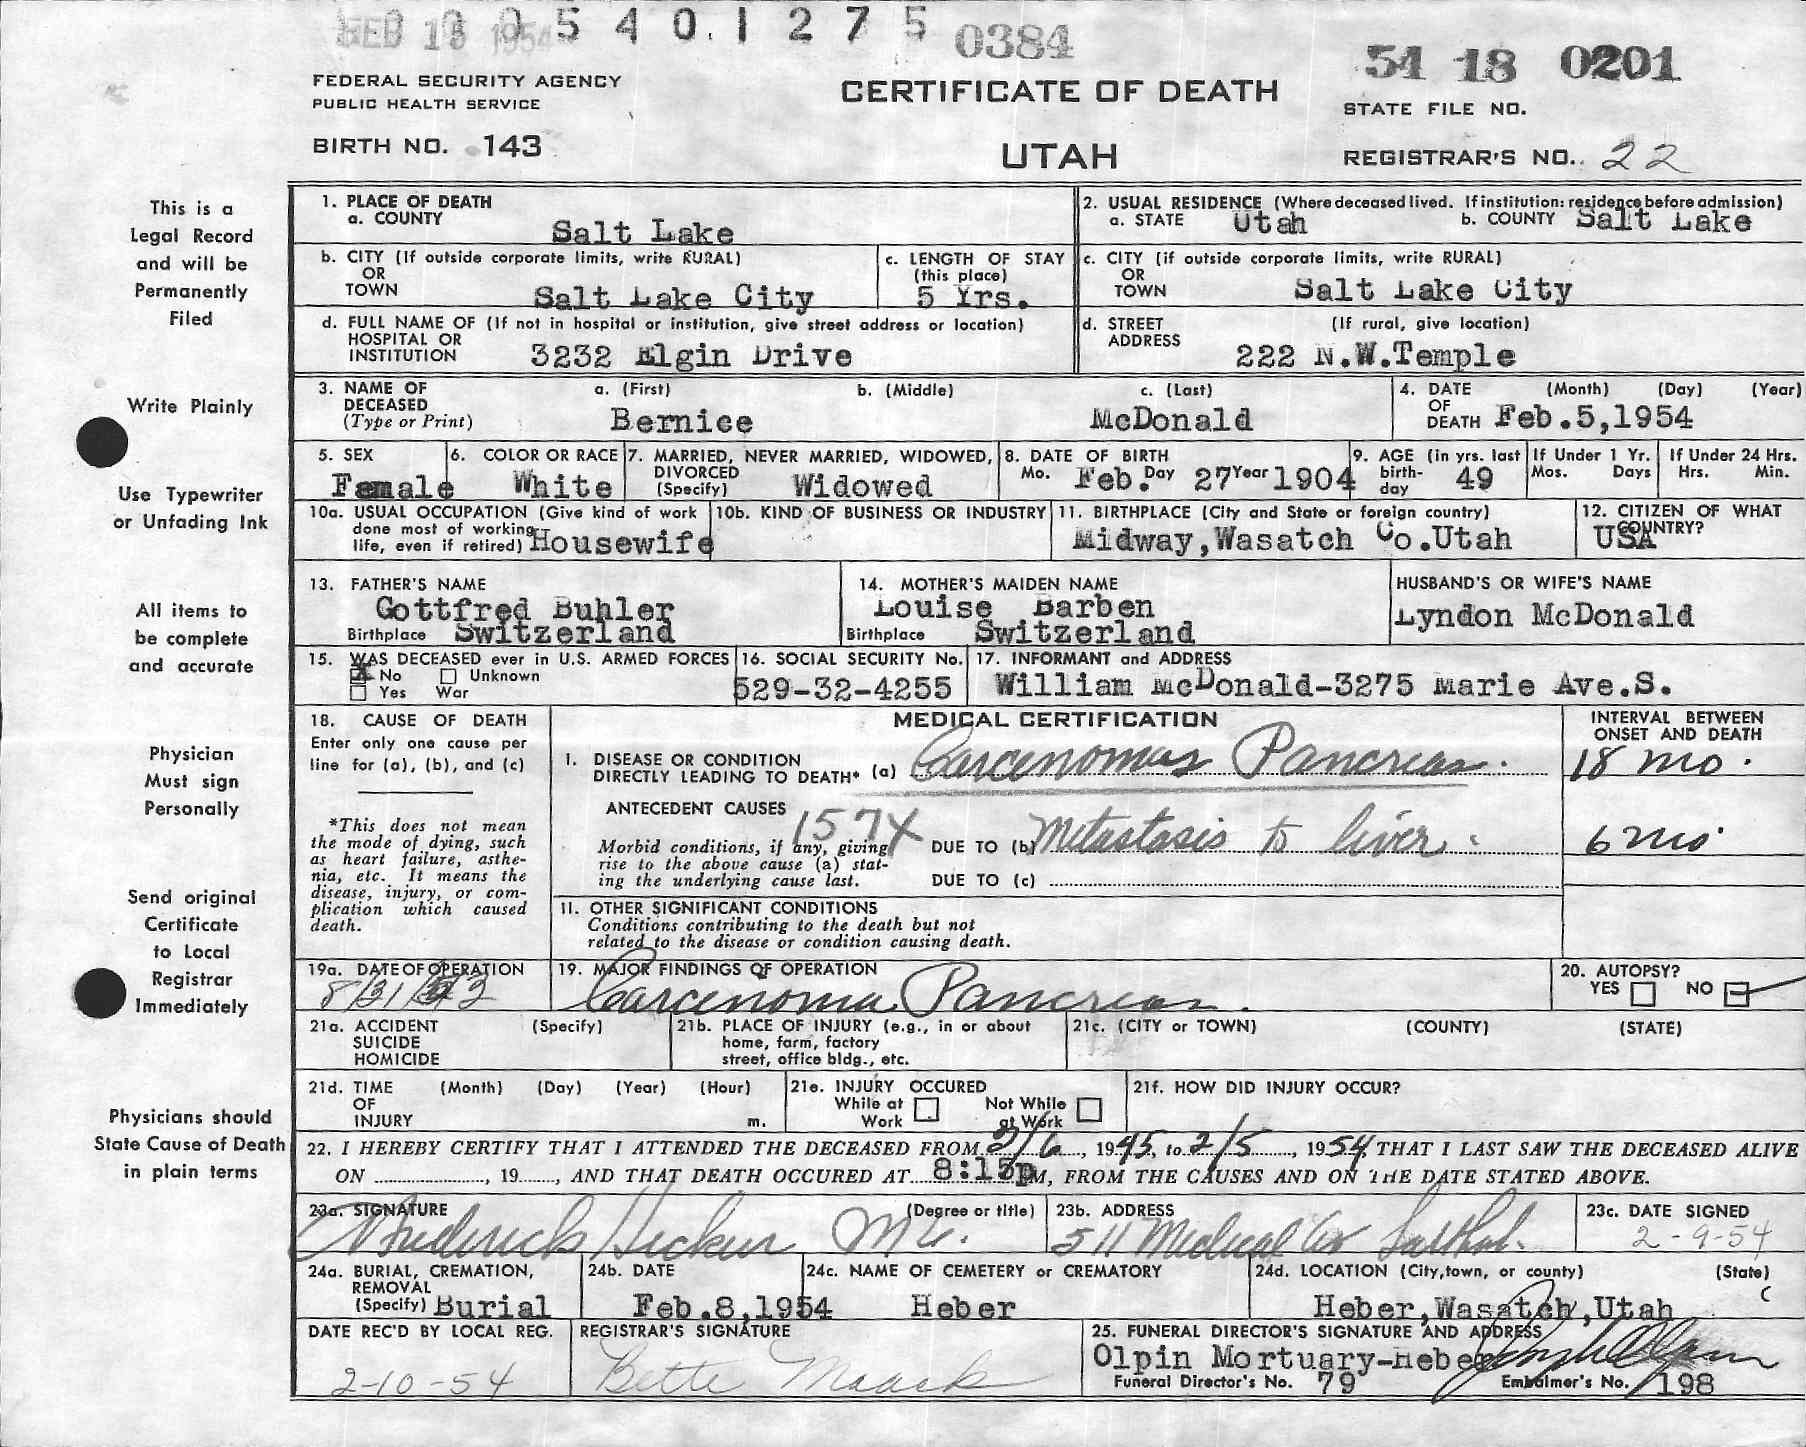 FEB 18 1954
540.1275
0384
54 18 0201
FEDERAL SECURITY AGENCY
PUBLIC HEALTH SERVICE
CERTIFICATE OF DEATH
STATE FILE NO.
BIRTH NO. 143
UTAH
REGISTRAR'S NO. 22
This is a
Legal Record
and will be
Permanently
Filed
Write Plainly
Use Typewriter
or Unfading Ink
All items to
be complete
and accurate
Physician
Must sign
Personally
Send original
Certificate
to Local
Registrar
Immediately
Physicians should
State Cause of Death
in plain terms
1. PLACE OF DEATH
a. COUNTY
Salt Lake
2. USUAL RESIDENCE (Where deceased lived. If institution: residence before admission)
a. STATE Utah b. COUNTY Salt Lake
b. CITY (If outside corporate limits, write RURAL)
OR
TOWN Salt Lake City
c. LENGTH OF STAY
(this place)
5 Yrs.
c. CITY (if outside corporate limits, write RURAL)
OR
TOWN Salt Lake City
d. FULL NAME OF (If not in hospital or institution, give street address or location)
HOSPITAL OR
INSTITUTION 3232 Elgin Drive
d. STREET (If rural, give location)
ADDRESS
222 N.W.Temple
3. NAME OF DECEASED
(Type or Print)
a. (First) b. (Middle) c. (Last)
Bernice McDonald
4. DATE (Month) (Day) (Year)
OF
DEATH Feb.5,1954
5. SEX
Female
6. COLOR OR RACE
White
7. MARRIED, NEVER MARRIED, WIDOWED,
DIVORCED
(Specify) Widowed
8. DATE OF BIRTH
Mo. Feb. Day 27 Year 1904
9. AGE (in yrs. last
birth-
day 49
If Under 1 Yr.
Mos. Days
If Under 24 Hrs.
Hrs. Min.
10a. USUAL OCCUPATION (Give kind of work
done most of working
life, even if retired) Housewife
10b. KIND OF BUSINESS OR INDUSTRY
11. BIRTHPLACE (City and State or foreign country)
Midway,Wasatch Co.Utah
12. CITIZEN OF WHAT
COUNTRY?
USA
13. FATHER'S NAME
Gottfred Buhler
Birthplace Switzerland
14. MOTHER'S MAIDEN NAME
Louise Barben
Birthplace Switzerland
HUSBAND'S OR WIFE'S NAME
Lyndon McDonald
15. WAS DECEASED ever in U.S. ARMED FORCES
X No Unknown
Yes War
16. SOCIAL SECURITY No.
529-32-4255
17. INFORMANT and ADDRESS
William McDonald-3275 Marie Ave.S.
18. CAUSE OF DEATH
Enter only one cause per
line for (a), (b), and (c)
*This does not mean
the mode of dying, such
as heart failure, asthe-
nia, etc. It means the
disease, injury, or com-
plication which caused
death.
MEDICAL CERTIFICATION
INTERVAL BETWEEN
ONSET AND DEATH
I. DISEASE OR CONDITION
DIRECTLY LEADING TO DEATH* (a) Carcinomas Pancreas. 18 mo.
ANTECEDENT CAUSES
157X
Morbid conditions, if any, giving
rise to the above cause (a) stat-
ing the underlying cause last.
DUE TO (b) Metastasis to liver. 6 mo
DUE TO (c)
11. OTHER SIGNIFICANT CONDITIONS
Conditions contributing to the death but not
related to the disease or condition causing death.
19a. DATE OF OPERATION
8/31/53
19. MAJOR FINDINGS OF OPERATION
Carcinoma Pancreas.
20. AUTOPSY?
YES NO
21a. ACCIDENT (Specify)
SUICIDE
HOMICIDE
21b. PLACE OF INJURY (e.g., in or about
home, farm, factory
street, office bldg., etc.
21c. (CITY or TOWN) (COUNTY) (STATE)
21d. TIME (Month) (Day) (Year) (Hour)
OF
INJURY m.
21e. INJURY OCCURED
While at Work Not While at Work
21f. HOW DID INJURY OCCUR?
22. I HEREBY CERTIFY THAT I ATTENDED THE DECEASED FROM 2/6, 1945, to 2/5, 1954, THAT I LAST SAW THE DECEASED ALIVE
ON , 19 , AND THAT DEATH OCCURED AT 8:15p M, FROM THE CAUSES AND ON THE DATE STATED ABOVE.
23a. SIGNATURE (Degree or title)
23b. ADDRESS
511 Medical
23c. DATE SIGNED
2-9-54
24a. BURIAL, CREMATION,
REMOVAL
(Specify) Burial
24b. DATE
Feb.8,1954
24c. NAME OF CEMETERY or CREMATORY
Heber
24d. LOCATION (City,town, or county) (State)
Heber,Wasatch,Utah
DATE REC'D BY LOCAL REG.
2-10-54
REGISTRAR'S SIGNATURE
Bette Maack
25. FUNERAL DIRECTOR'S SIGNATURE AND ADDRESS
Olpin Mortuary-Heber
Funeral Director's No. 79 Embalmer's No. 198